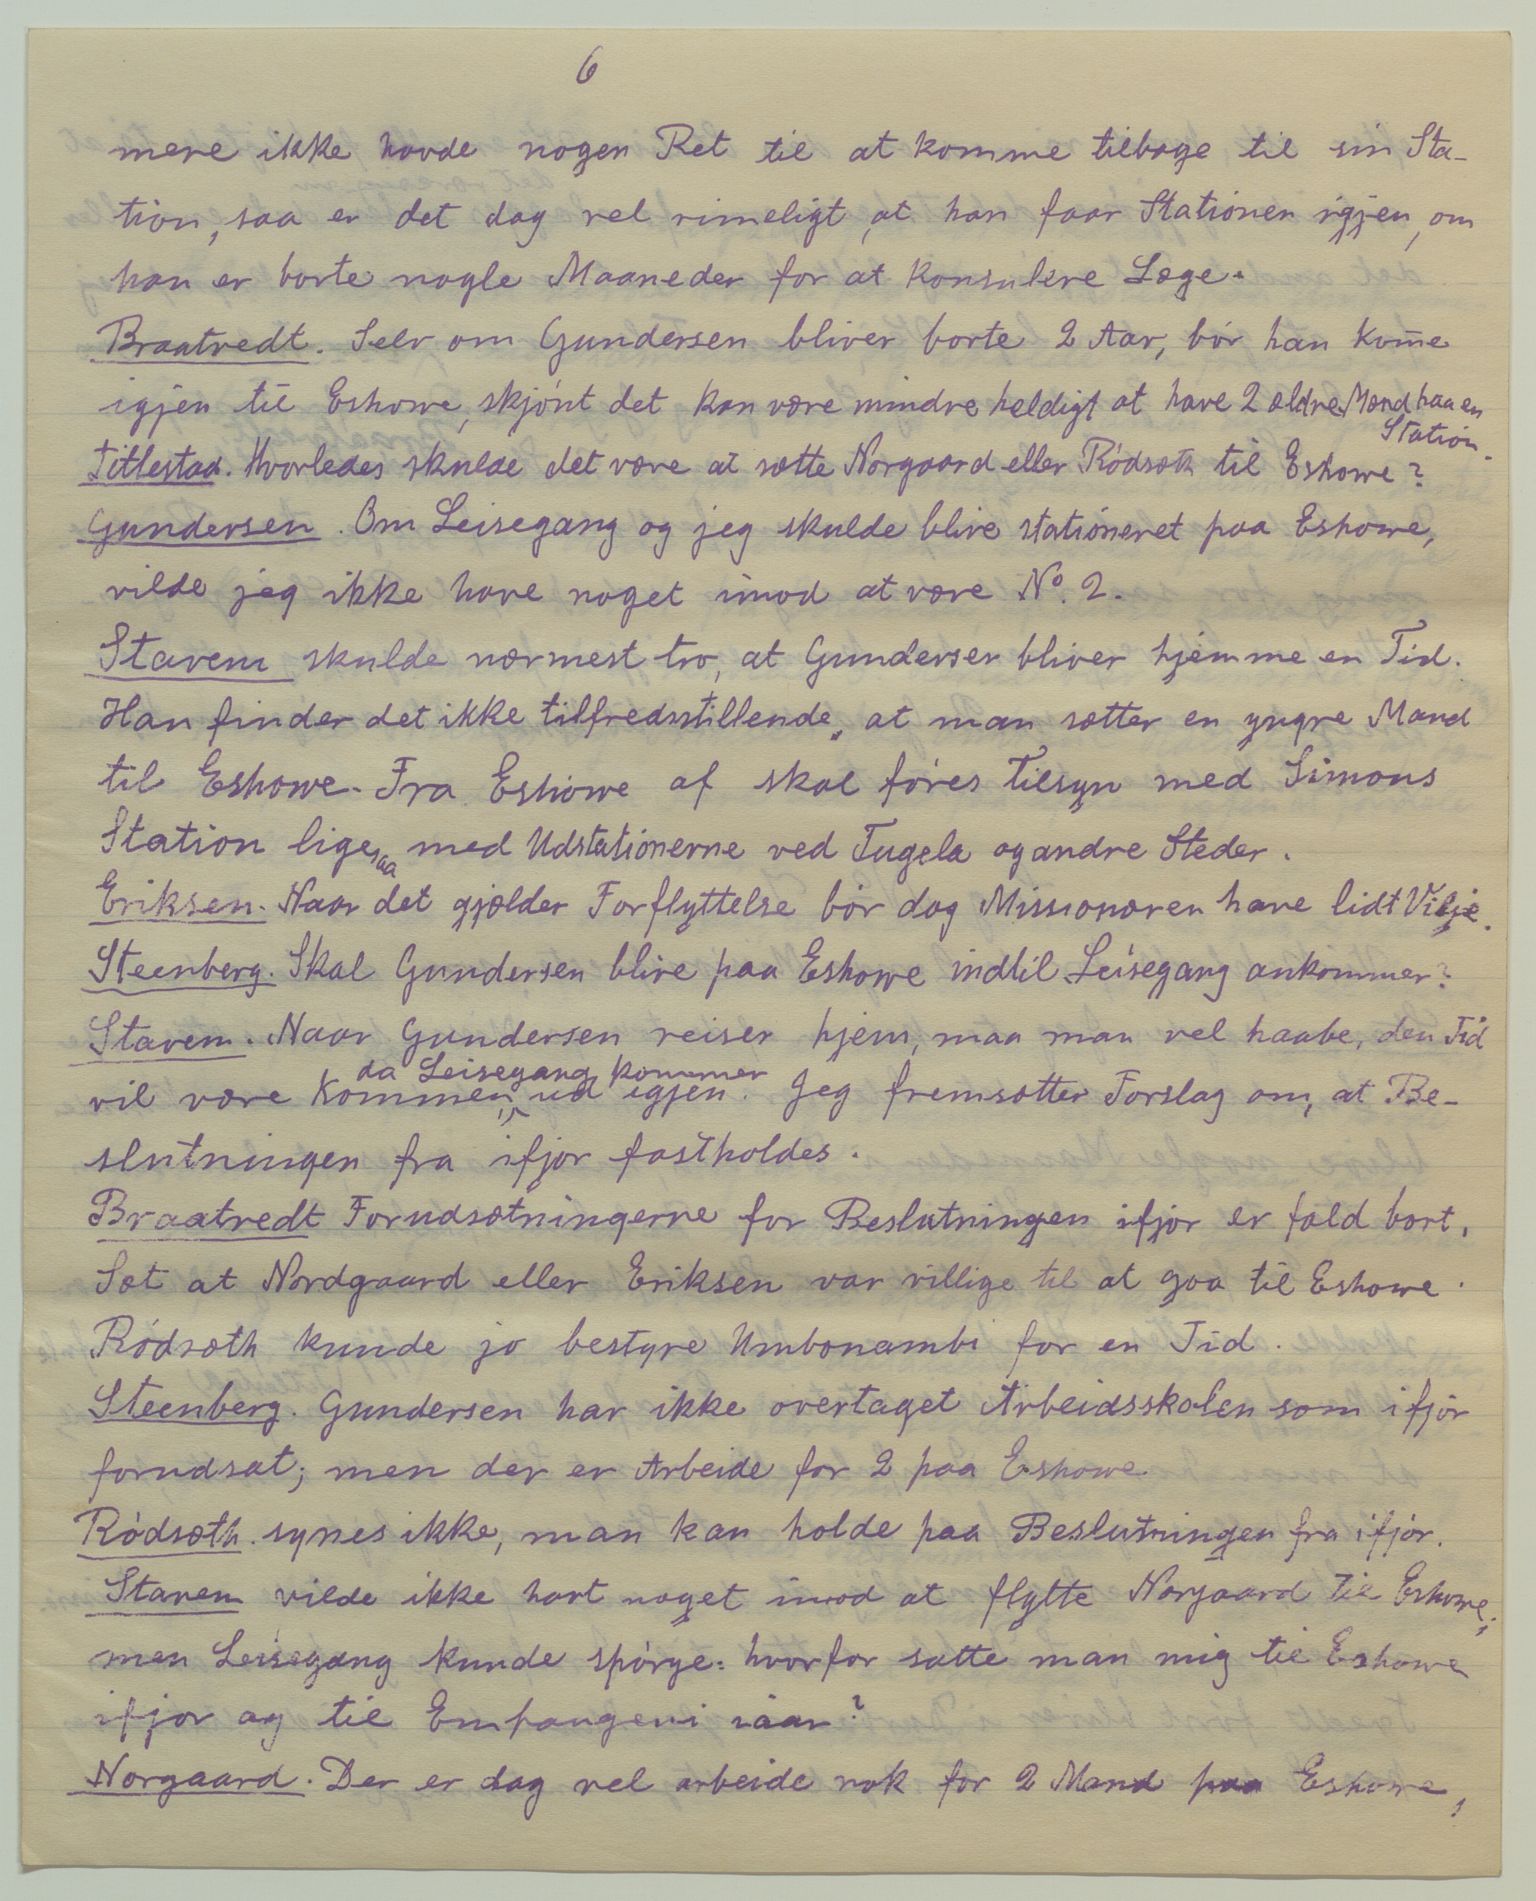 6
mere ikke havde nogen Ret til at komme tilbage til sin Sta-
tion, saa er det dog vel rimeligt, at han faar Stationen igjen, om
han er borte nogle Maaneder for at konsulere Læge.
Braatvedt. Selv om Gundersen bliver borte 2 Aar, bör han kom̅e
igjen til Eshowe, skjönt det kan være mindre heldigt at have 2 ældre Mænd paa en
Station.
Titlestad. Hvorledes skulde det være at sætte Norgaard eller Rödsæth til Eshowe?
Gundersen. Om Leisegang og jeg skulde blive stationeret paa Eshowe,
vilde jeg ikke have noget imod at være No. 2.
Stavem skulde nærmest tro, at Gundersen bliver hjemme en Tid.
Han finder det ikke tilfredsstillende, at man sætter en yngre Mand
til Eshowe. Fra Eshowe af skal föres Tilsyn med Simons
Station ligesaa med Udstationerne ved Tugela og andre Steder.
Eriksen. Naar det gjælder Forflyttelse bör dog Missionæren have lidt Vilje.
Steenberg. Skal Gundersen blive paa Eshowe indtil Leisegang ankommer?
Stavem. Naar Gundersen reiser hjem, maa man vel haabe, den Tid
da Leisegang kommer
vil være kommen, ud igjen. Jeg fremsætter Forslag om, at Be-
slutningen fra ifjor fastholdes.
Braatvedt Forudsætningerne for Beslutningen ifjor er fald bort.
Sæt at Nordgaard eller Eriksen var villige til at gaa til Eshowe.
Rödsæth kunde jo bestyre Umbonambi for en Tid.
Steenberg. Gundersen har ikke overtaget Arbeidsskolen som ifjor
forudsat; men der er Arbeide for 2 paa Eshowe.
Rödsæth. synes ikke, man kan holde paa Beslutningen fra ifjor.
Stavem vilde ikke havt noget imod at flytte Norgaard til Eshowe;
men Leisegang kunde spörge: hvorfor satte man mig til Eshowe
ifjor og til Empangeni iaar?
Norgaard. Der er dog vel arbeide nok for 2 Mand paa Eshowe,